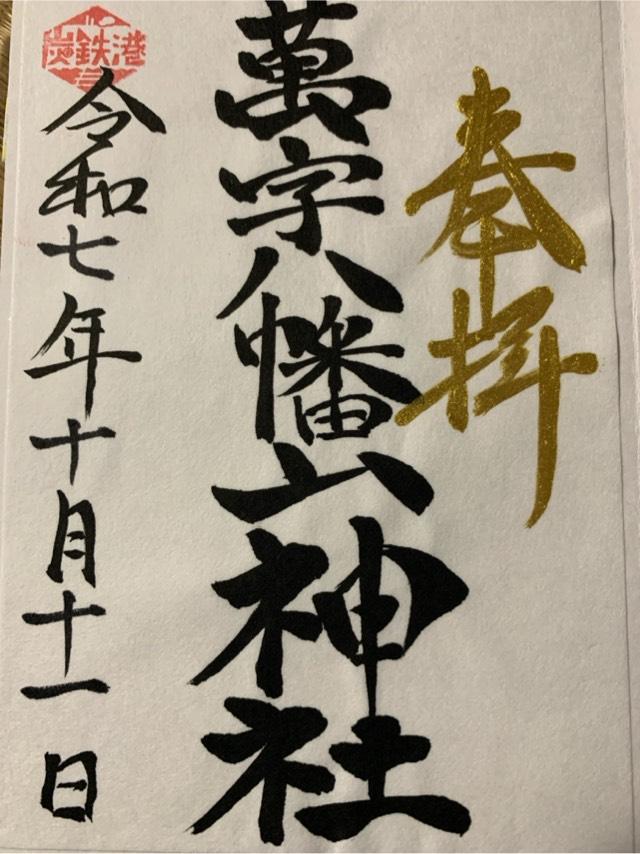 奉拝
萬字八幡山神社
令和七年十月十一日
炭鉄港